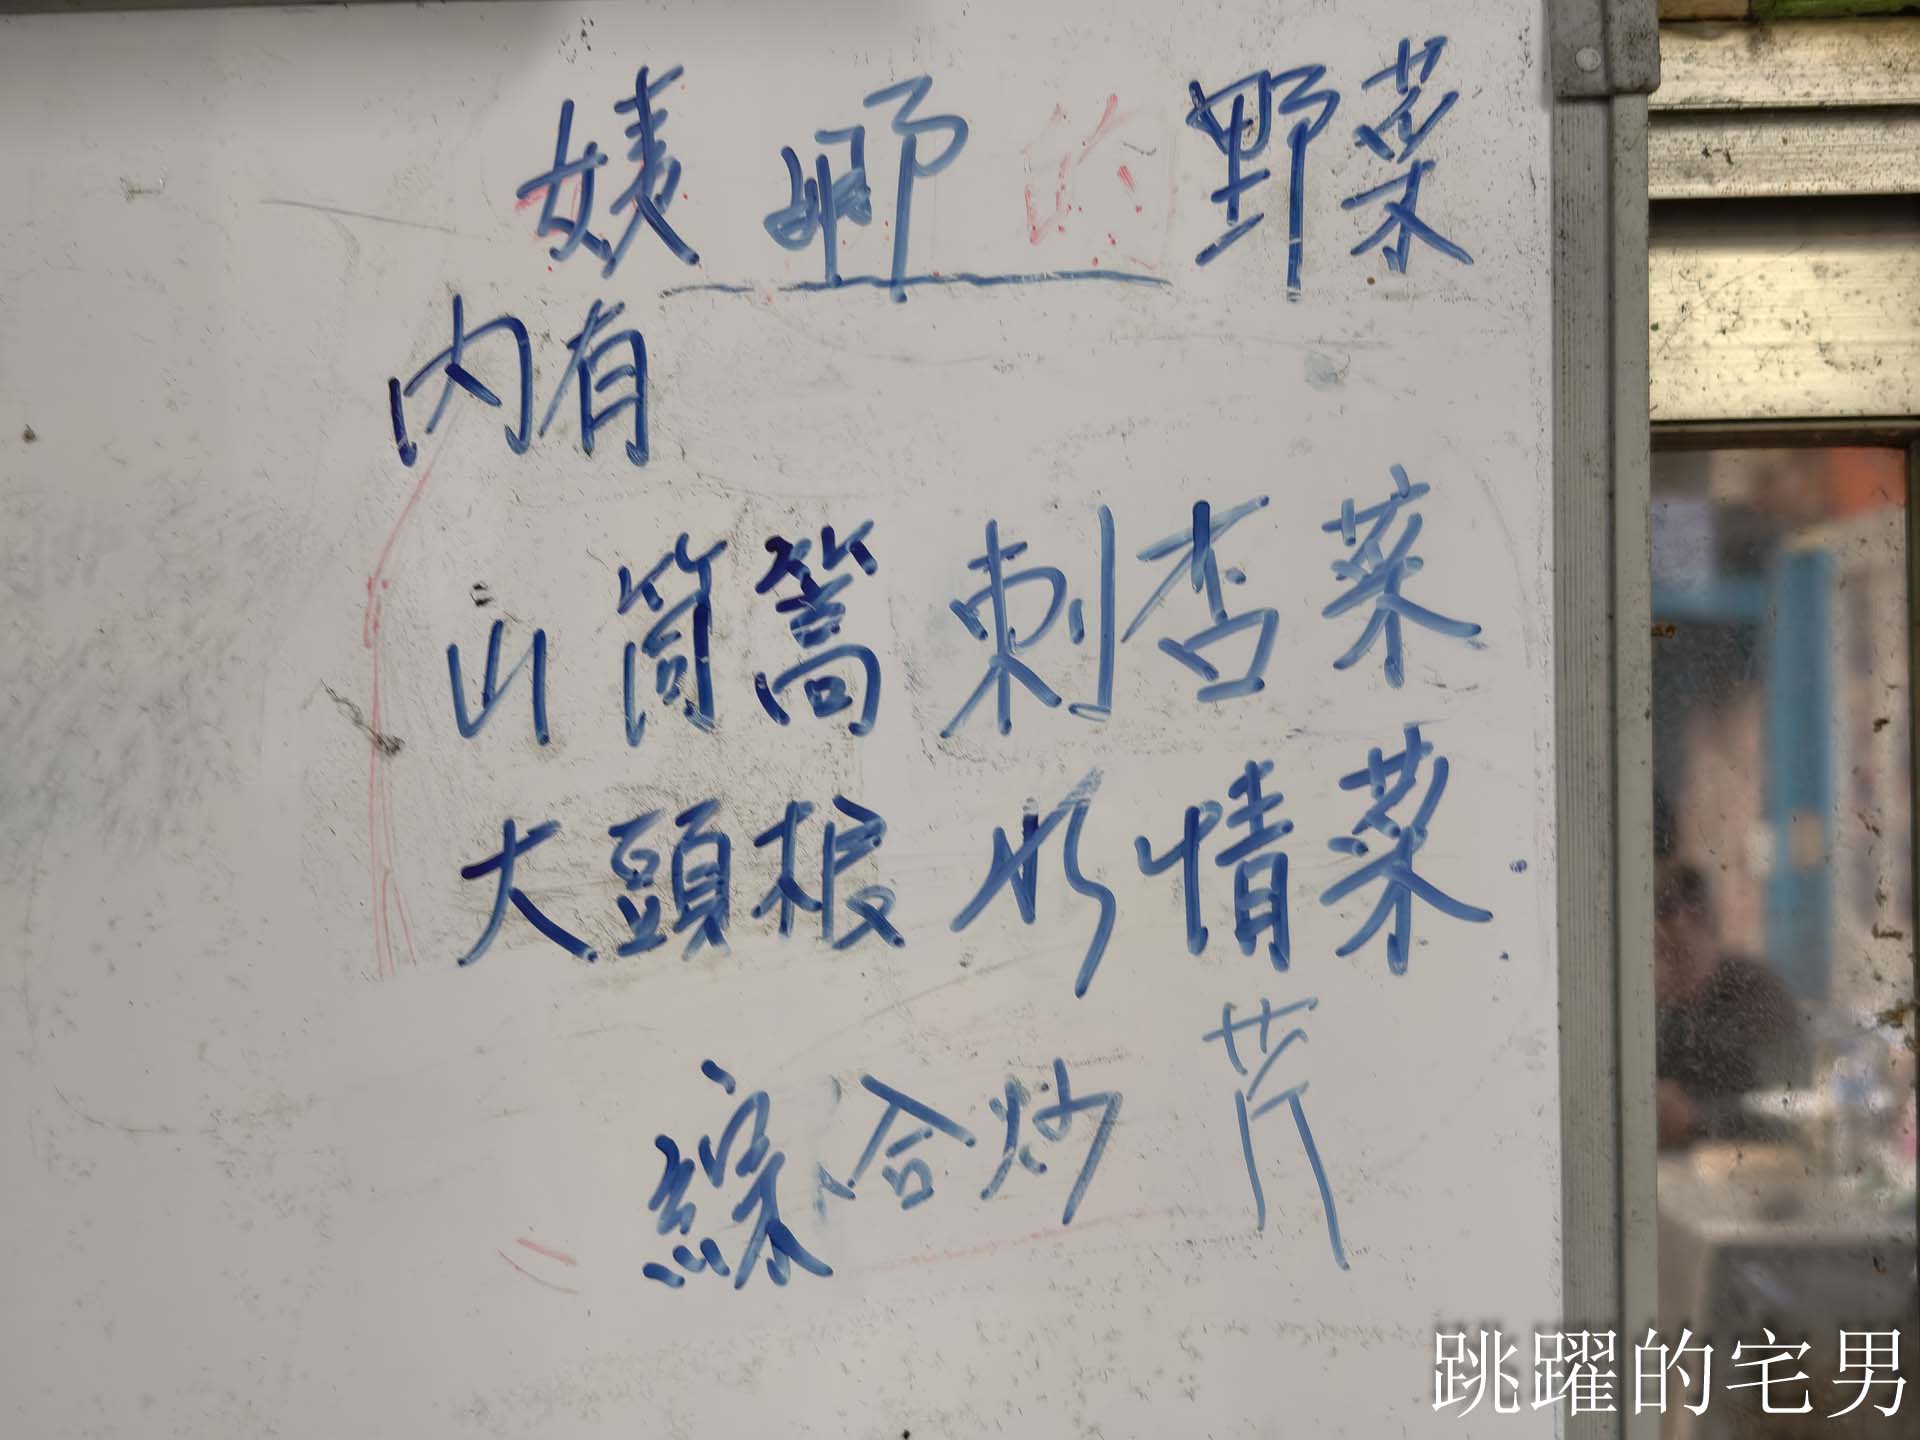 娜的野菜
內有
山筒篙 刺否菜
大頭根 水情菜
綜合炒 芹
跳躍的宅男